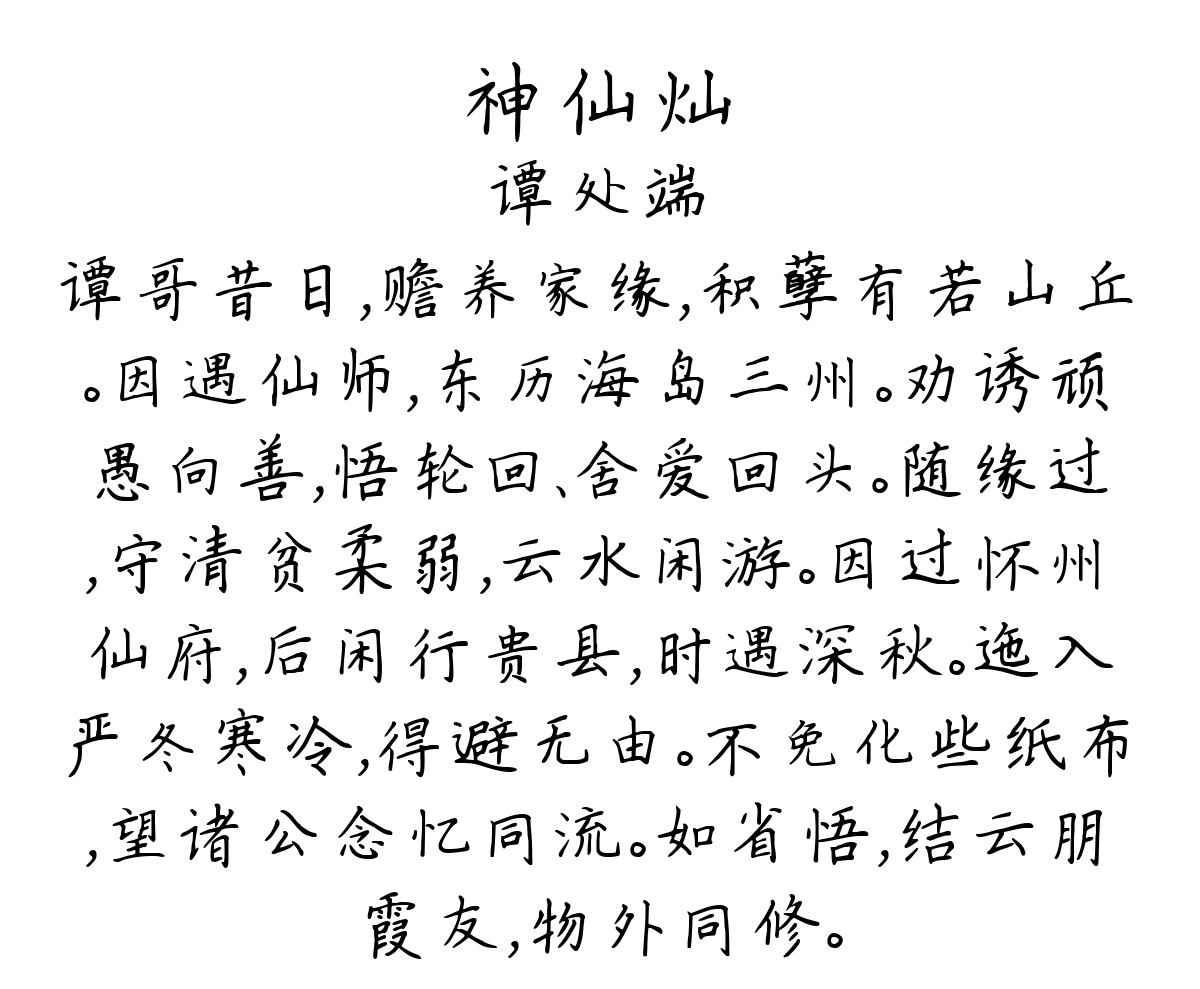 神仙灿
谭处端
谭哥昔日,赡养家缘,积孽有若山丘
。因遇仙师,东历海岛三州。劝诱顽
愚向善,悟轮回、舍爱回头。随缘过
,守清贫柔弱,云水闲游。因过怀州
仙府,后闲行贵县,时遇深秋。迤入
严冬寒冷,得避无由。不免化些纸布
,望诸公念忆同流。如省悟,结云朋
霞友,物外同修。